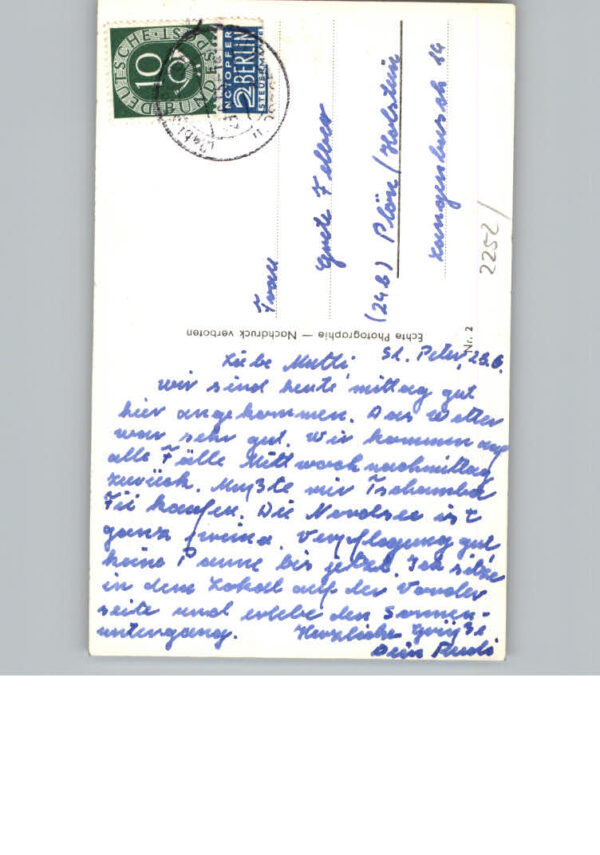 DEUTSCHE BUNDESPOST
10
NOTOPFER
2 BERLIN
STEUERMARKE
Frau
Grete Felber
(24b) Plön/Holstein
Langenbusch 14
2252/
Echte Photographie — Nachdruck verboten
Nr. 2
St. Peter, 25.6.
Liebe Mutti,
wir sind heute mittag gut
hier angekommen. Das Wetter
war sehr gut. Wir kommen auf
alle Fälle Mittwochnachmittag
zurück. Mußte mir Tschamba
Fii kaufen. Die Nordsee ist
ganz prima. Verpflegung gut
keine Panne bis jetzt. Ich sitze
in dem Lokal auf der Vorder
seite und erlebe den Sonnen-
untergang. Herzliche Grüße
Dein